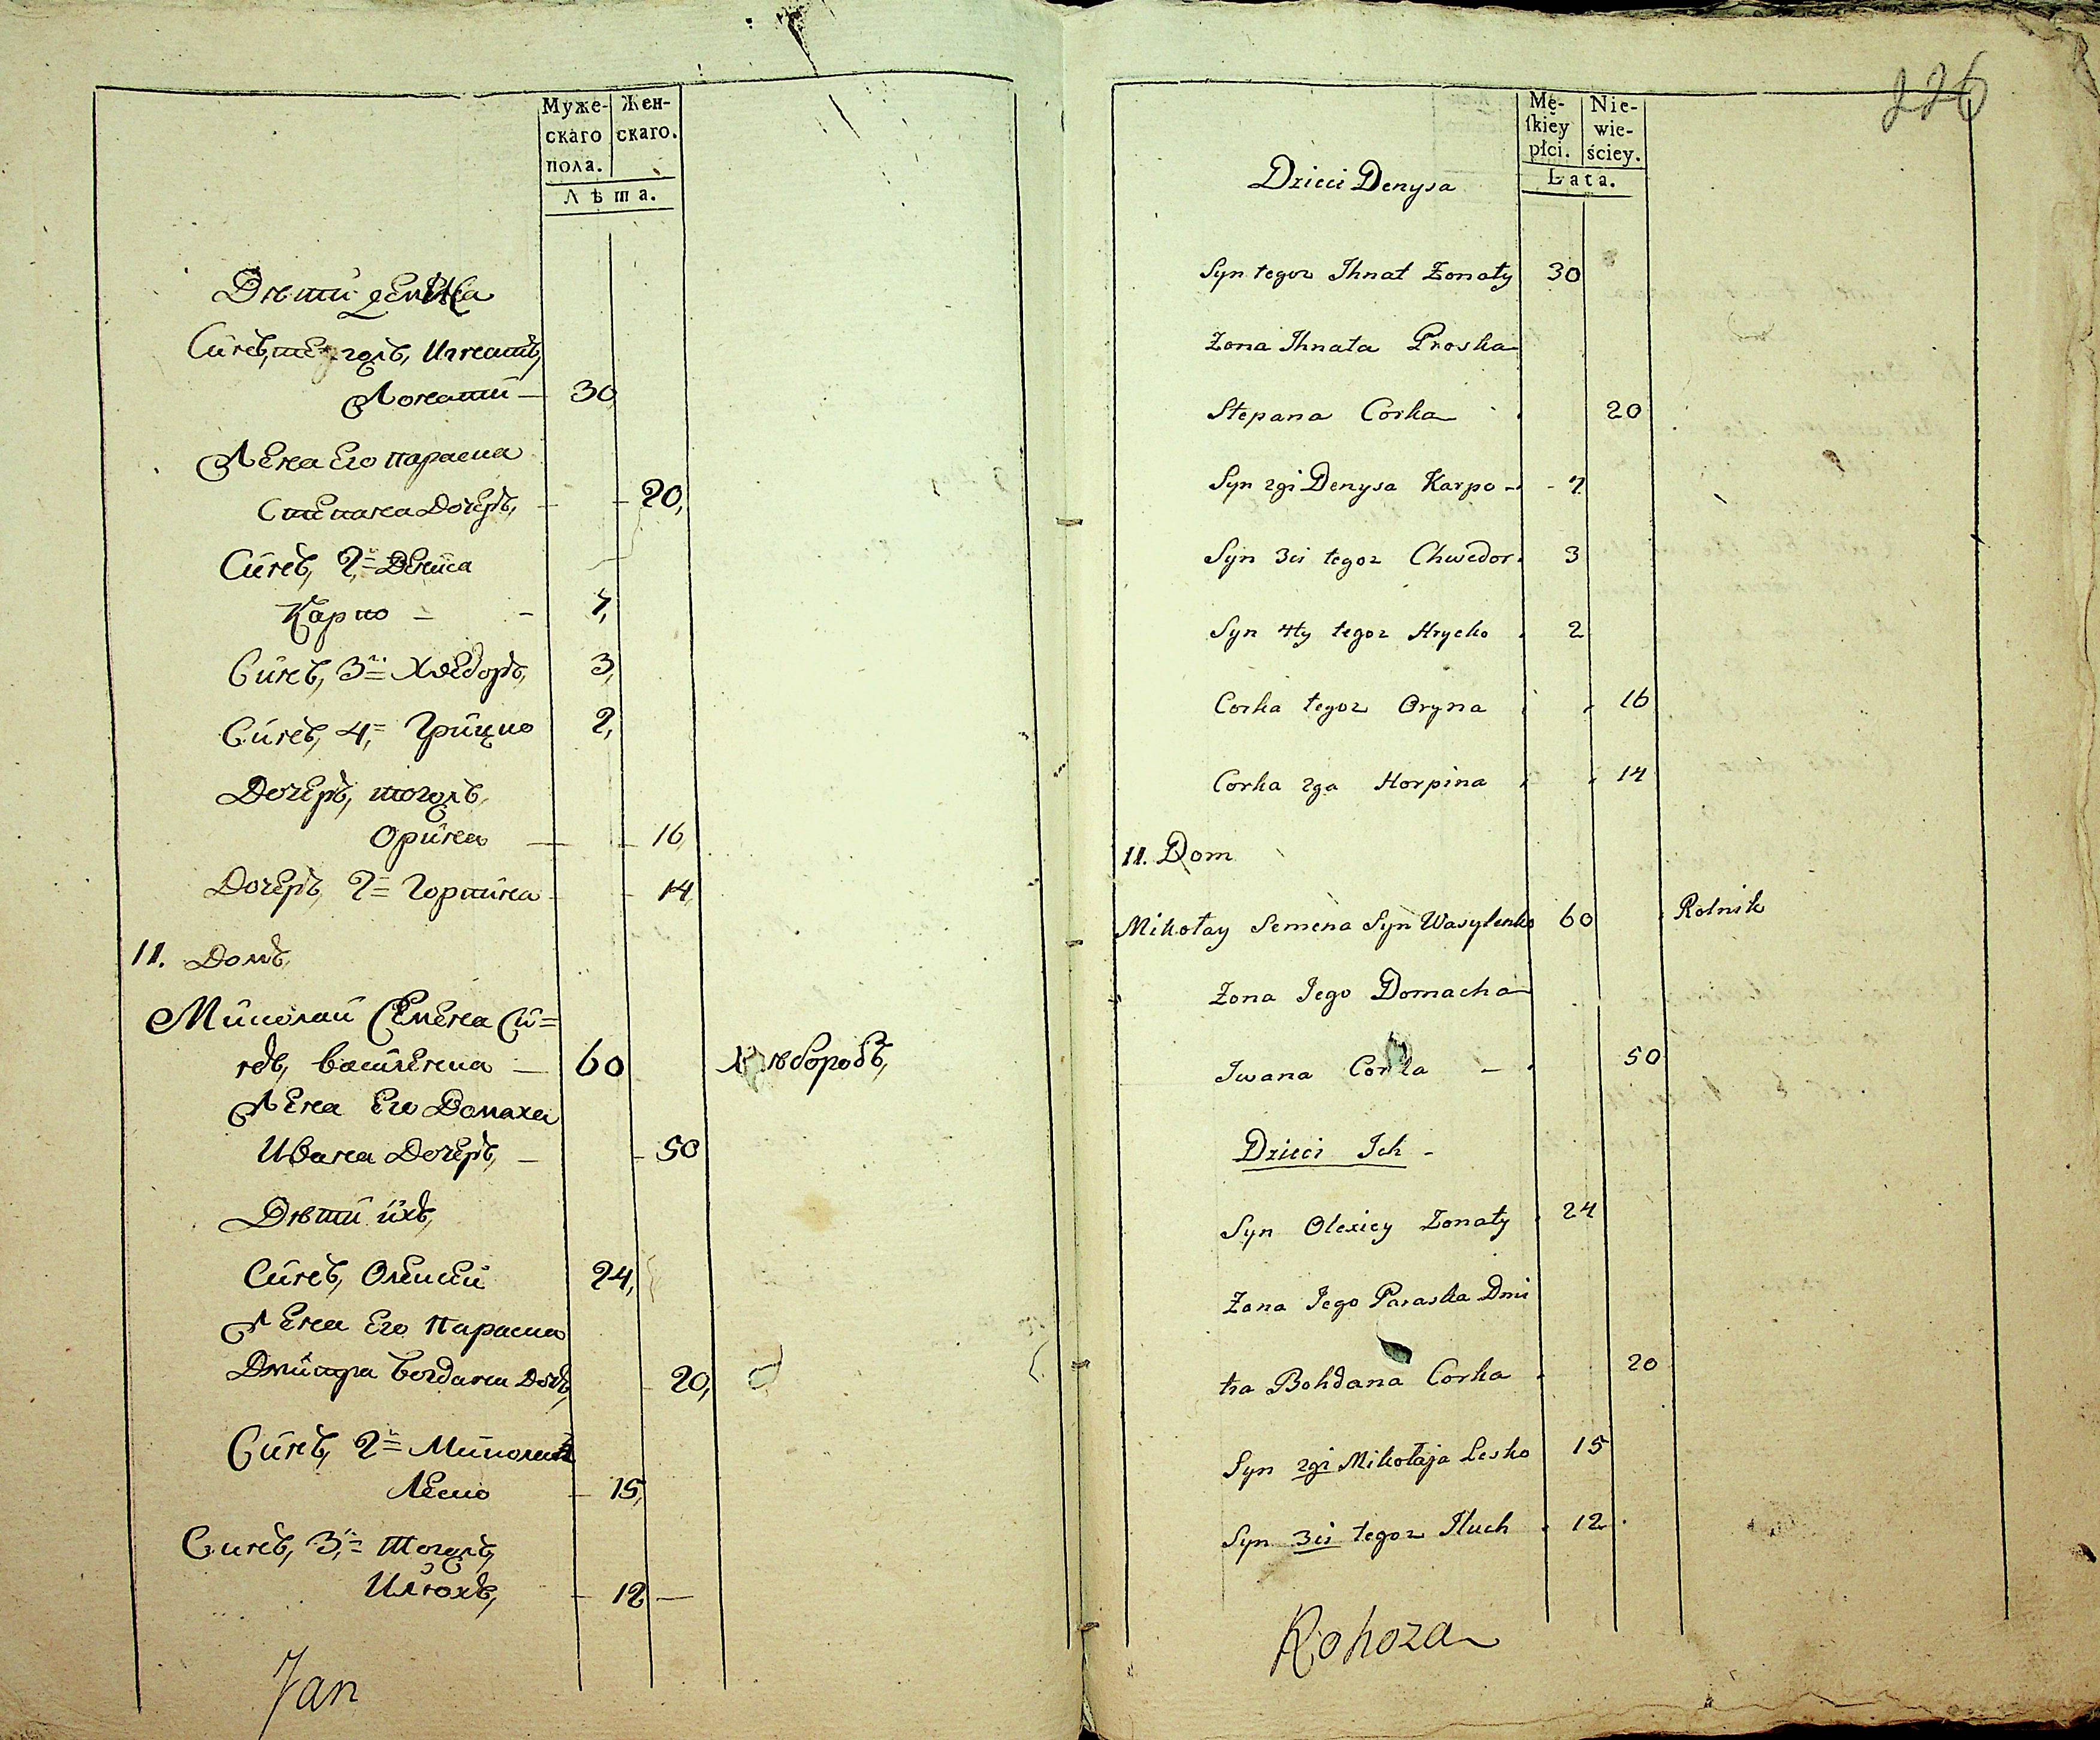 Муже-
скаго
пола.
Жен-
скаго.
Лѣта.
Дѣти Дениса
Синъ, тогожъ, Игнатъ,
Жонати — 30
Жена Его Параска
Степана Дочеръ, — 20,
Синъ, 2й Дениса
Карпо — 7,
Синъ, 3й Хведоръ, 3,
Синъ, 4й Грицко 2,
Дочеръ, тогожъ
Орина — 16
Дочеръ, 2я Горпина 14
11. Домъ,
Миколай Семена Си=
нъ, Василенко — 60 Хлѣборобъ,
Жена Его Домаха
Ивана Дочеръ, — 50
Дѣти ихъ,
Синъ, Олексѣй 24,
Жена Его Параска
Дмитра Богдана Дочъ, 20,
Синъ, 2й Миколая
Леско — 15,
Синъ, 3й Тогожъ,
Илюхъ, — 12 —
Jan
226
Mę-
skiey
płci.
Nie-
wie-
ściey.
Lata.
Dzieci Denysa
Syn tegoz Ihnat Zonaty 30
Zona Ihnata Proska
Stepana Corka 20
Syn 2gi Denysa Karpo - 7
Syn 3ci tegoz Chwedor. 3
Syn 4ty tegoz Hrycko 2
Corka tegoz Oryna 16
Corka 2ga Horpina 14
11. Dom
Mikołay Semena Syn Wasylenko 60 Rolnik
Zona Jego Domacha
Iwana Corka - 50
Dzieci Ich -
Syn Olexiey Zonaty 24
Zona Jego Paraska Dmi
tra Bohdana Corka 20
Syn 2gi Mikołaja Lesko 15
Syn 3ci tegoz Iluch 12
Rohoza